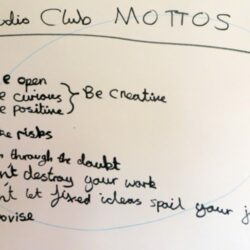 dio Club MOTTOS
e open
e curious } Be Creative
e positive
e risks
through the doubt
n't destroy your work
n't let fixed ideas spoil your j
ovise